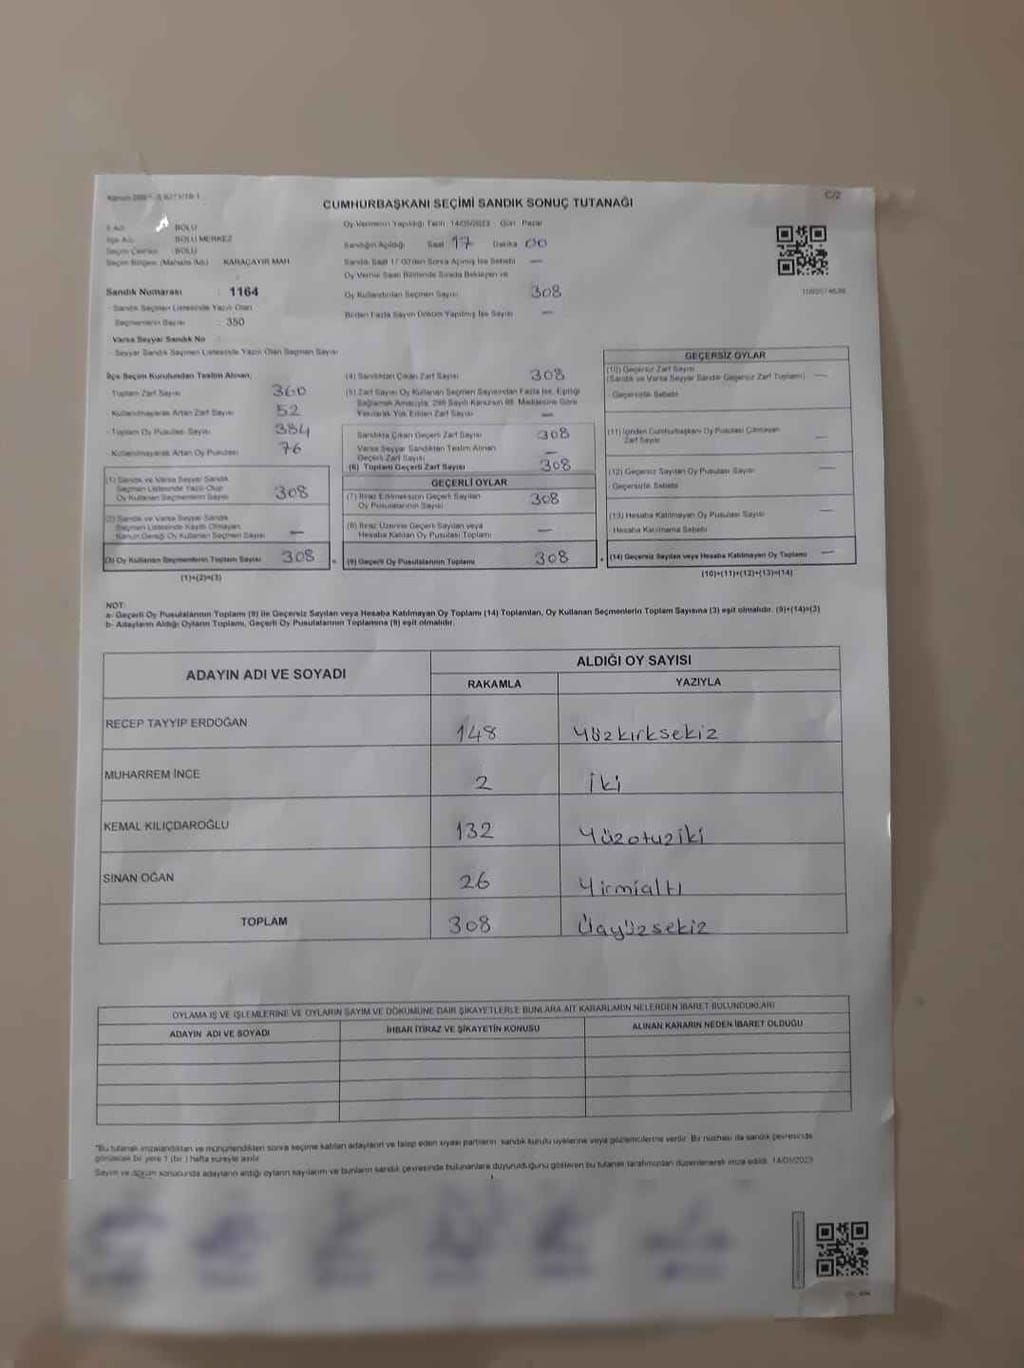 C/2
CUMHURBAŞKANI SEÇİMİ SANDIK SONUÇ TUTANAĞI
İli Adı : BOLU
İlçe Adı : BOLU MERKEZ
Seçim Çevresi : BOLU
Seçim Bölgesi (Mahalle Adı) : KARAÇAYIR MAH.
Sandık Numarası : 1164
Sandık Seçmen Listesinde Yazılı Olan
Seçmenlerin Sayısı : 350
Varsa Seyyar Sandık No
Seyyar Sandık Seçmen Listesinde Yazılı Olan Seçmen Sayısı
Oy Vermenin Yapıldığı Tarih 14/05/2023 Gün Pazar
Sandığın Açıldığı Saat 17 Dakika 00
Sandık Saat 17:00'den Sonra Açılmış İse Sebebi —
Oy Verme Saati Bitiminde Sırada Bekleyen ve
Oy Kullandırılan Seçmen Sayısı 308
Birden Fazla Sayım Döküm Yapılmış İse Sayısı —
İlçe Seçim Kurulundan Teslim Alınan;
Toplam Zarf Sayısı 360
Kullanılmayarak Artan Zarf Sayısı 52
Toplam Oy Pusulası Sayısı 384
Kullanılmayarak Artan Oy Pusulası 76
(1) Sandık ve Varsa Seyyar Sandık
Seçmen Listesinde Yazılı Olup
Oy Kullanan Seçmenlerin Sayısı 308
(2) Sandık ve Varsa Seyyar Sandık
Seçmen Listesinde Kayıtlı Olmayan,
Kanun Gereği Oy Kullanan Seçmen Sayısı —
(3) Oy Kullanan Seçmenlerin Toplam Sayısı 308
(1)+(2)=(3)
(4) Sandıktan Çıkan Zarf Sayısı 308
(5) Zarf Sayısı Oy Kullanan Seçmen Sayısından Fazla İse, Eşitliği
Sağlamak Amacıyla, 298 Sayılı Kanunun 98. Maddesine Göre
Yakılarak Yok Edilen Zarf Sayısı —
Sandıkta Çıkan Geçerli Zarf Sayısı 308
Varsa Seyyar Sandıktan Teslim Alınan
Geçerli Zarf Sayısı —
(6) Toplam Geçerli Zarf Sayısı 308
GEÇERLİ OYLAR
(7) İtiraz Edilmeksizin Geçerli Sayılan
Oy Pusulalarının Sayısı 308
(8) İtiraz Üzerine Geçerli Sayılan veya
Hesaba Katılan Oy Pusulası Toplamı —
(9) Geçerli Oy Pusulalarının Toplamı 308
GEÇERSİZ OYLAR
(10) Geçersiz Zarf Sayısı
(Sandık ve Varsa Seyyar Sandık Geçersiz Zarf Toplamı) —
Geçersizlik Sebebi
(11) İçinden Cumhurbaşkanı Oy Pusulası Çıkmayan
Zarf Sayısı —
(12) Geçersiz Sayılan Oy Pusulası Sayısı —
Geçersizlik Sebebi
(13) Hesaba Katılmayan Oy Pusulası Sayısı —
Hesaba Katılmama Sebebi
(14) Geçersiz Sayılan veya Hesaba Katılmayan Oy Toplamı —
(10)+(11)+(12)+(13)=(14)
NOT:
a- Geçerli Oy Pusulalarının Toplamı (9) ile Geçersiz Sayılan veya Hesaba Katılmayan Oy Toplamı (14) Toplamları, Oy Kullanan Seçmenlerin Toplam Sayısına (3) eşit olmalıdır. (9)+(14)=(3)
b- Adayların Aldığı Oyların Toplamı, Geçerli Oy Pusulalarının Toplamına (9) eşit olmalıdır.
ADAYIN ADI VE SOYADI
ALDIĞI OY SAYISI
RAKAMLA YAZIYLA
RECEP TAYYİP ERDOĞAN 148 Yüzkırksekiz
MUHARREM İNCE 2 İki
KEMAL KILIÇDAROĞLU 132 Yüzotuziki
SİNAN OĞAN 26 Yirmialtı
TOPLAM 308 Üçyüzsekiz
OYLAMA İŞ VE İŞLEMLERİNE VE OYLARIN SAYIM VE DÖKÜMÜNE DAİR ŞİKAYETLERLE BUNLARA AİT KARARLARIN NELERDEN İBARET BULUNDUKLARI
ADAYIN ADI VE SOYADI İHBAR İTİRAZ VE ŞİKAYETİN KONUSU ALINAN KARARIN NEDEN İBARET OLDUĞU
"Bu tutanak imzalandıktan ve mühürlendikten sonra seçime katılan adayların ve talep eden siyasi partilerin sandık kurulu üyelerine veya gözlemcilerine verilir. Bir nüshası da sandık çevresinde
görülecek bir yere 1 (bir) hafta süreyle asılır.
Sayım ve döküm sonucunda adayların aldığı oyların sayılarını ve bunların sandık çevresinde bulunanlara duyurulduğunu gösteren bu tutanak tarafımızdan düzenlenerek imza edildi. 14/05/2023